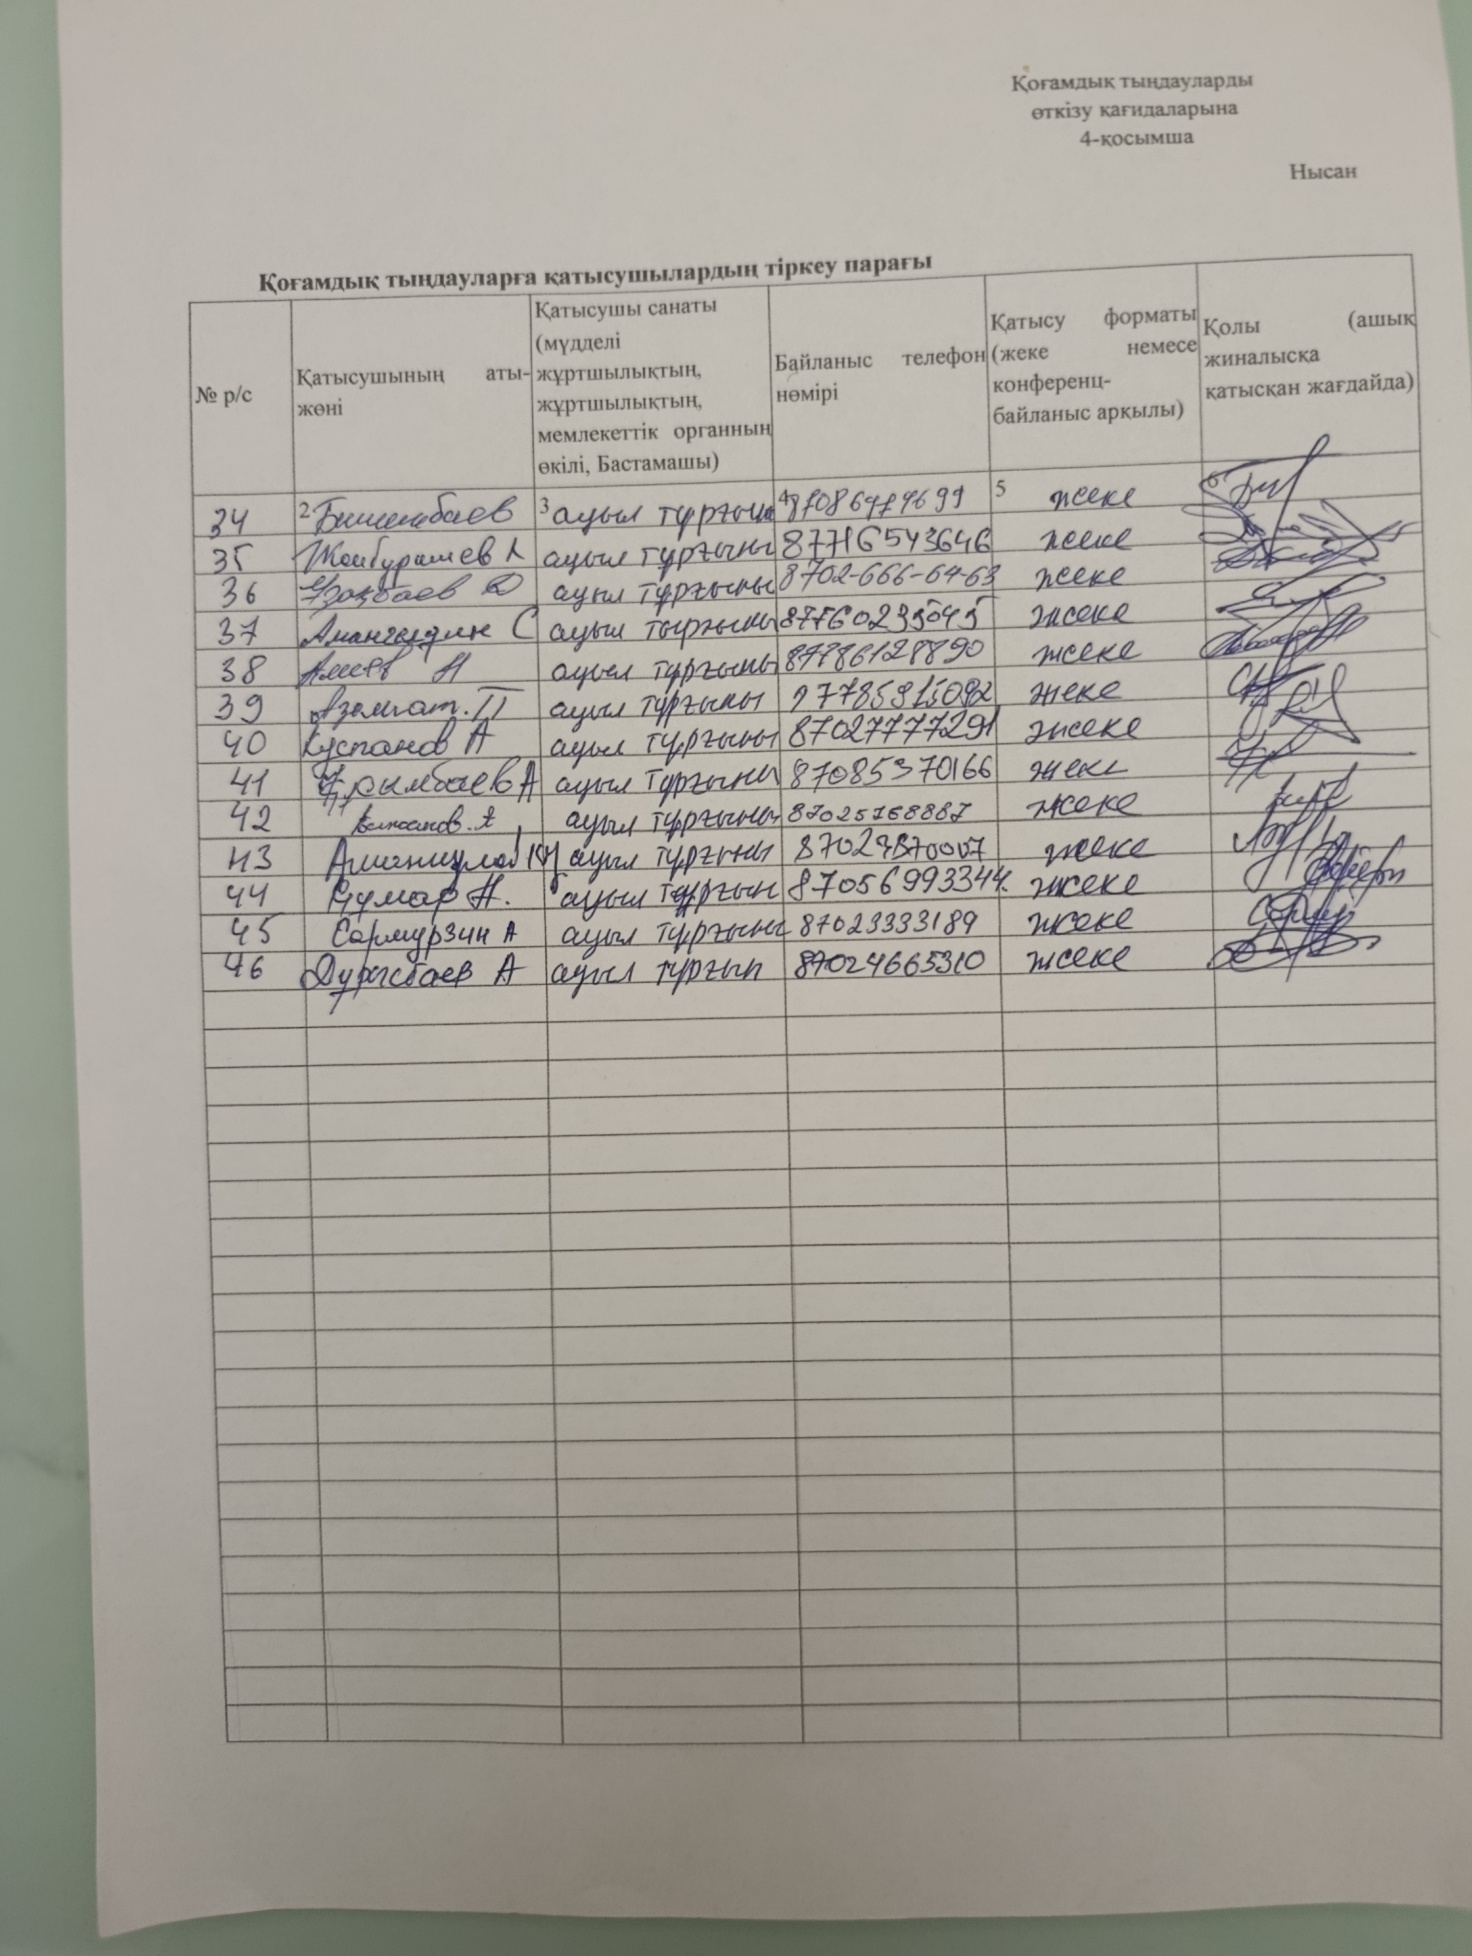 Қоғамдық тыңдауларды
өткізу қағидаларына
4-қосымша
Нысан
Қоғамдық тыңдауларға қатысушылардың тіркеу парағы
№ р/с
Қатысушының аты-
жөні
Қатысушы санаты
(мүдделі
жұртшылықтың,
жұртшылықтың,
мемлекеттік органның
өкілі, Бастамашы)
Байланыс телефон
нөмірі
Қатысу форматы
(жеке немесе
конференц-
байланыс арқылы)
Қолы (ашық
жиналысқа
қатысқан жағдайда)
34 2 Бишембаев 3 ауыл тұрғын 4 5 жеке 6
35 ауыл тұрғыны 87716543646 жеке
36 ауыл тұрғыны 8702-666-64-63 жеке
37 Амангелдин С ауыл тырғыны жеке
38 ауыл тұрғыны 87786128890 жеке
39 Азамат. П ауыл тұрғыны жеке
40 Куспанов А ауыл тұрғыны 87027777291 жеке
41 ауыл тұрғыны 87085370166 жеке
42 ауыл тұрғыны 87025768887 жеке
43 ауыл тұрғыны жеке
44 Құмар Н. ауыл тұрғын 87056993344. жеке
45 Сармурзин А ауыл тұрғыны 87023333189 жеке
46 ауыл тұрғын 87024665310 жеке